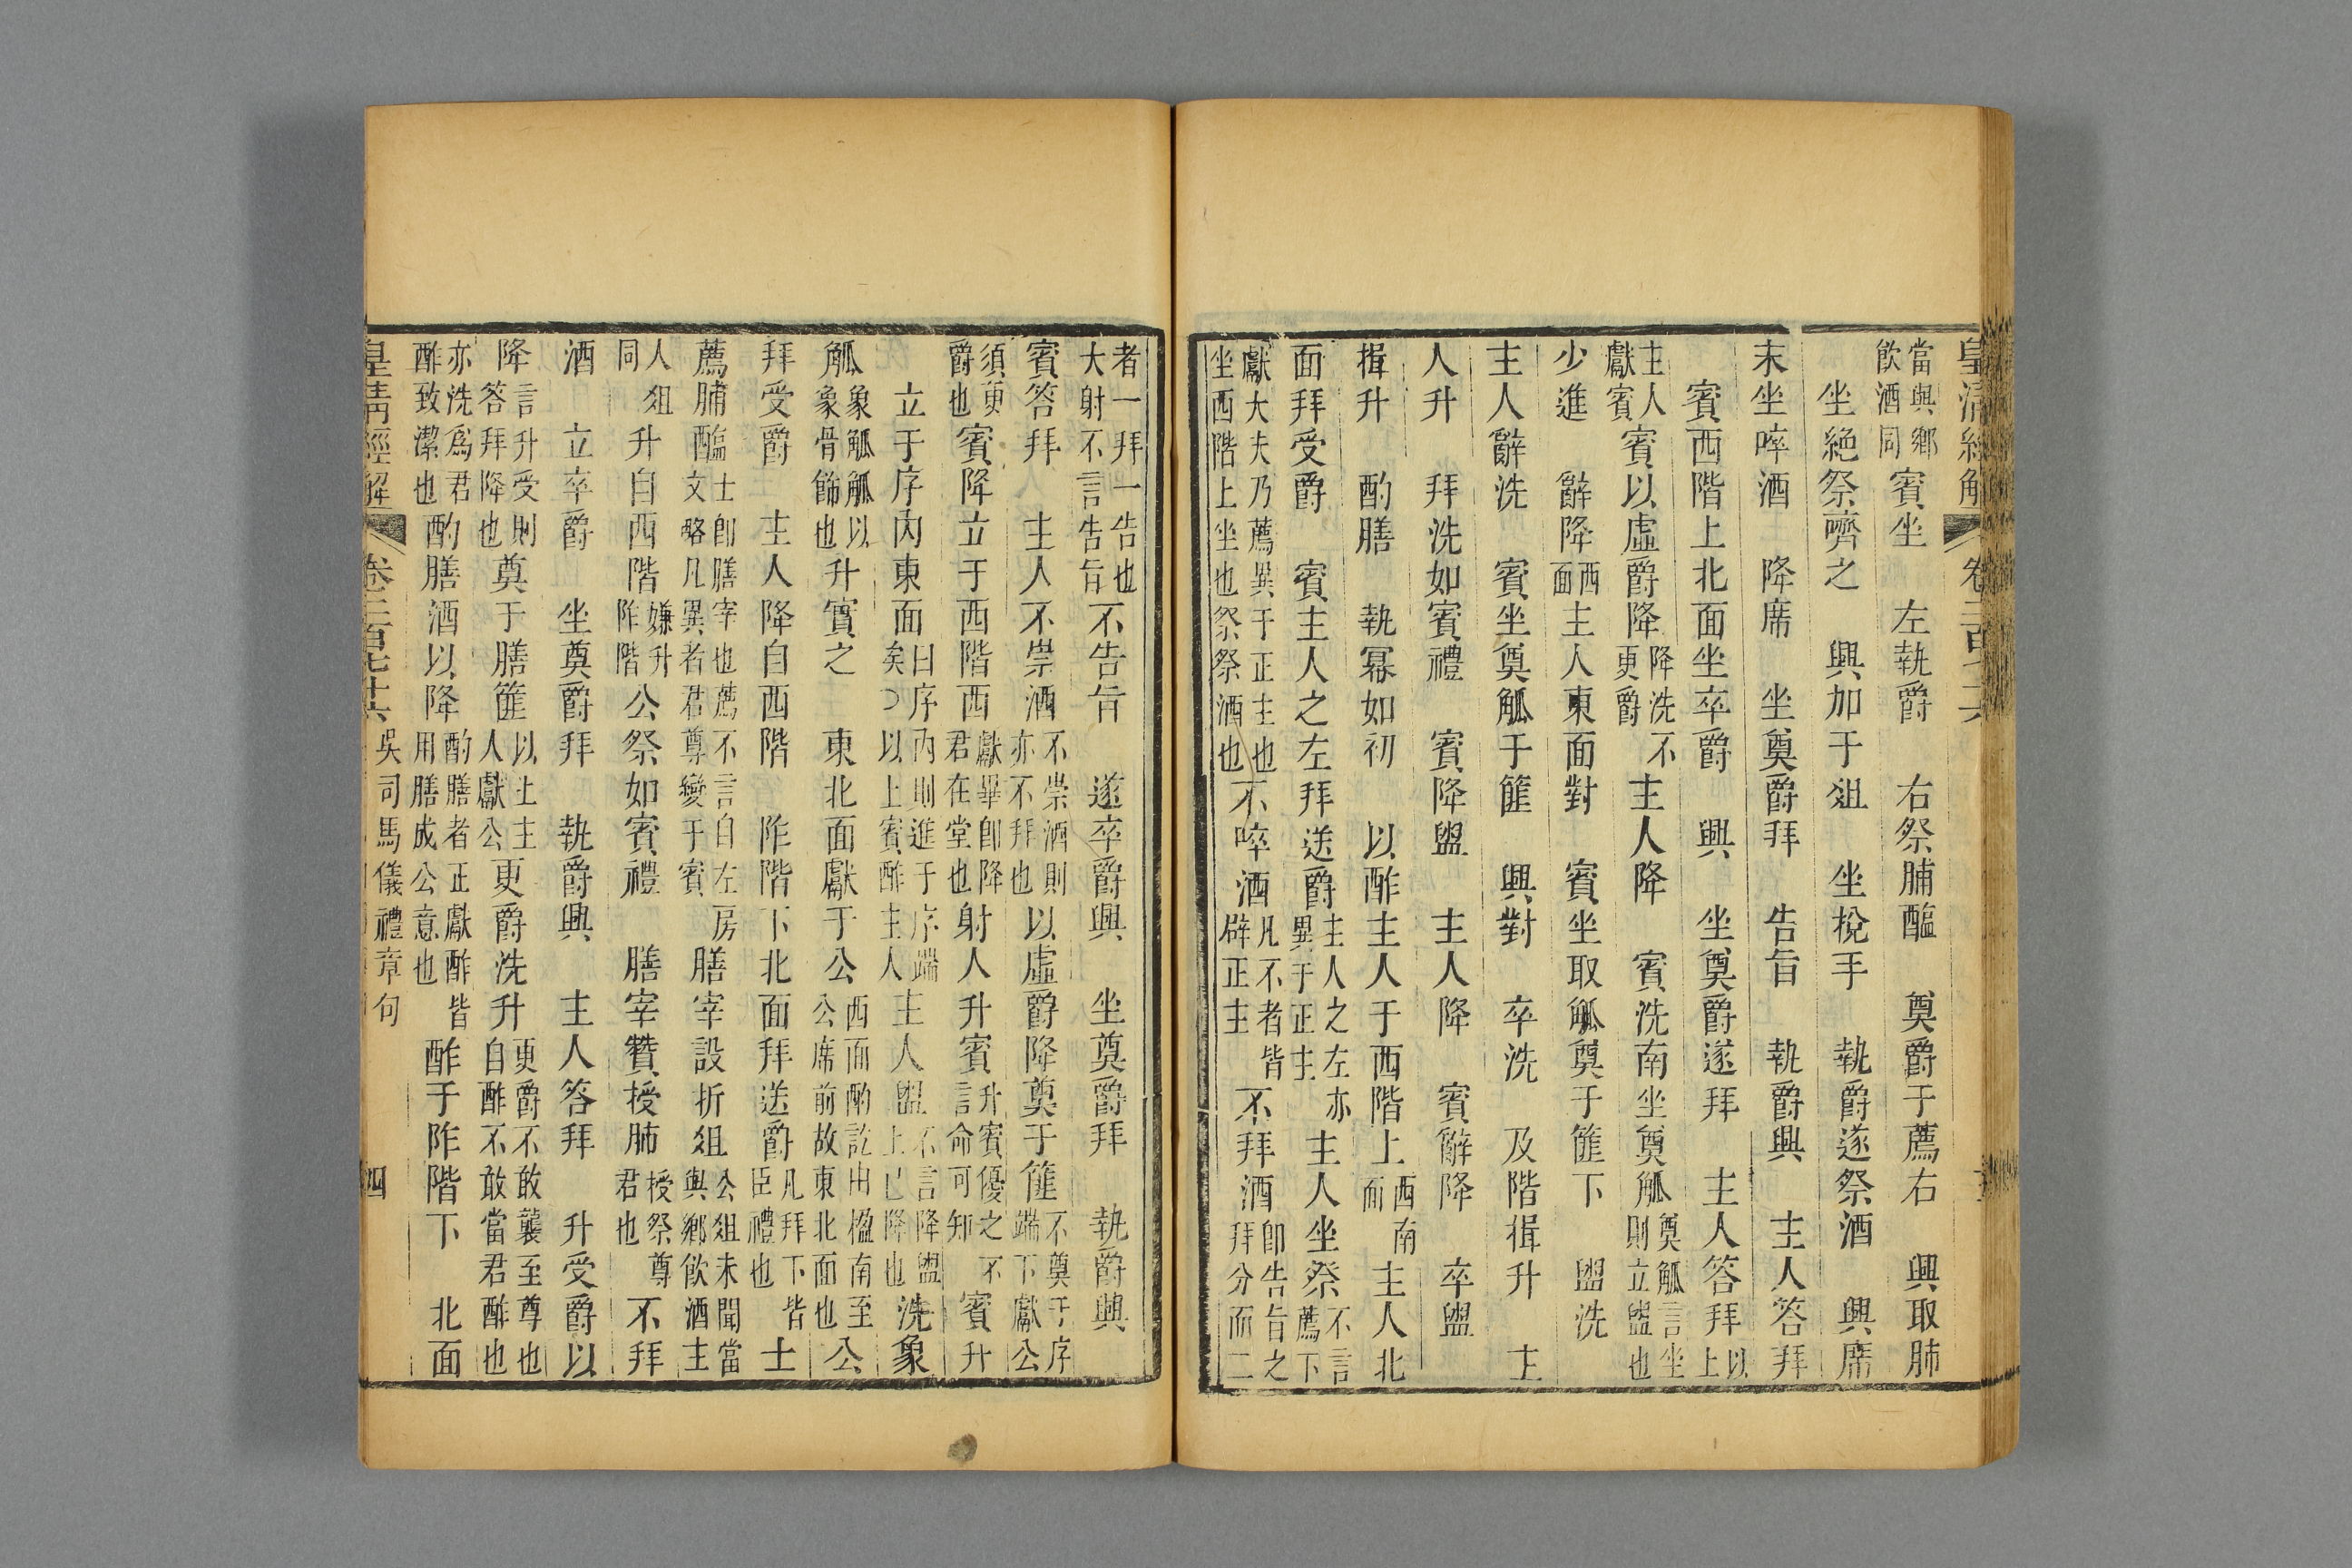 皇清經解 卷二百七十六
當與鄉飲酒同賓坐 左執爵 右祭脯醢 奠爵于薦右 興取肺
坐絕祭嚌之 興加于俎 坐挩手 執爵遂祭酒 興席
末坐啐酒 降席 坐奠爵拜 告旨 執爵興 主人答拜
賓西階上北面坐卒爵 興 坐奠爵遂拜 主人答拜以上
主人獻賓賓以虛爵降降洗不更爵主人降 賓洗南坐奠觚奠觚言坐則立盥也
少進 辭降西面主人東面對 賓坐取觚奠于篚下 盥洗
主人辭洗 賓坐奠觚于篚 興對 卒洗 及階揖升 主
人升 拜洗如賓禮 賓降盥 主人降 賓辭降 卒盥
揖升 酌膳 執冪如初 以酢主人于西階上西南面主人北
面拜受爵 賓主人之左拜送爵主人之左亦異于正主主人坐祭不言薦下
獻大夫乃薦異于正主也坐西階上坐也祭祭酒也不啐酒凡不者皆辟正主不拜酒卽告旨之拜分而二
者一拜一告也大射不言告旨不告旨 遂卒爵興 坐奠爵拜 執爵興
賓答拜 主人不崇酒不崇酒則亦不拜也以虛爵降奠于篚不奠于序端下獻公
須更爵也賓降立于西階西獻畢卽降君在堂也射人升賓升賓優之不言命可知賓升
立于序內東面曰序內則進于序端矣以上賓酢主人主人盥不言降盥上已降也洗象
觚象觚觚以象骨飾也升實之 東北面獻于公西面酌訖由楹南至公席前故東北面也公
拜受爵 主人降自西階 阼階下北面拜送爵凡拜下皆臣禮也士
薦脯醢士卽膳宰也薦不言自左房文略凡異者君尊變于賓膳宰設折俎公俎未聞當與鄉飲酒主
人俎同升自西階嫌升阼階公祭如賓禮 膳宰贊授肺授祭尊君也不拜
酒 立卒爵 坐奠爵拜 執爵興 主人答拜 升受爵以
降言升受則答拜降也奠于膳篚以上主人獻公更爵洗升更爵不敢襲至尊也自酢不敢當君酢也
亦洗爲君酢致潔也酌膳酒以降酌膳者正獻酢皆用膳成公意也酢于阼階下 北面
皇清經解 卷二百七十六 吳司馬儀禮章句 四